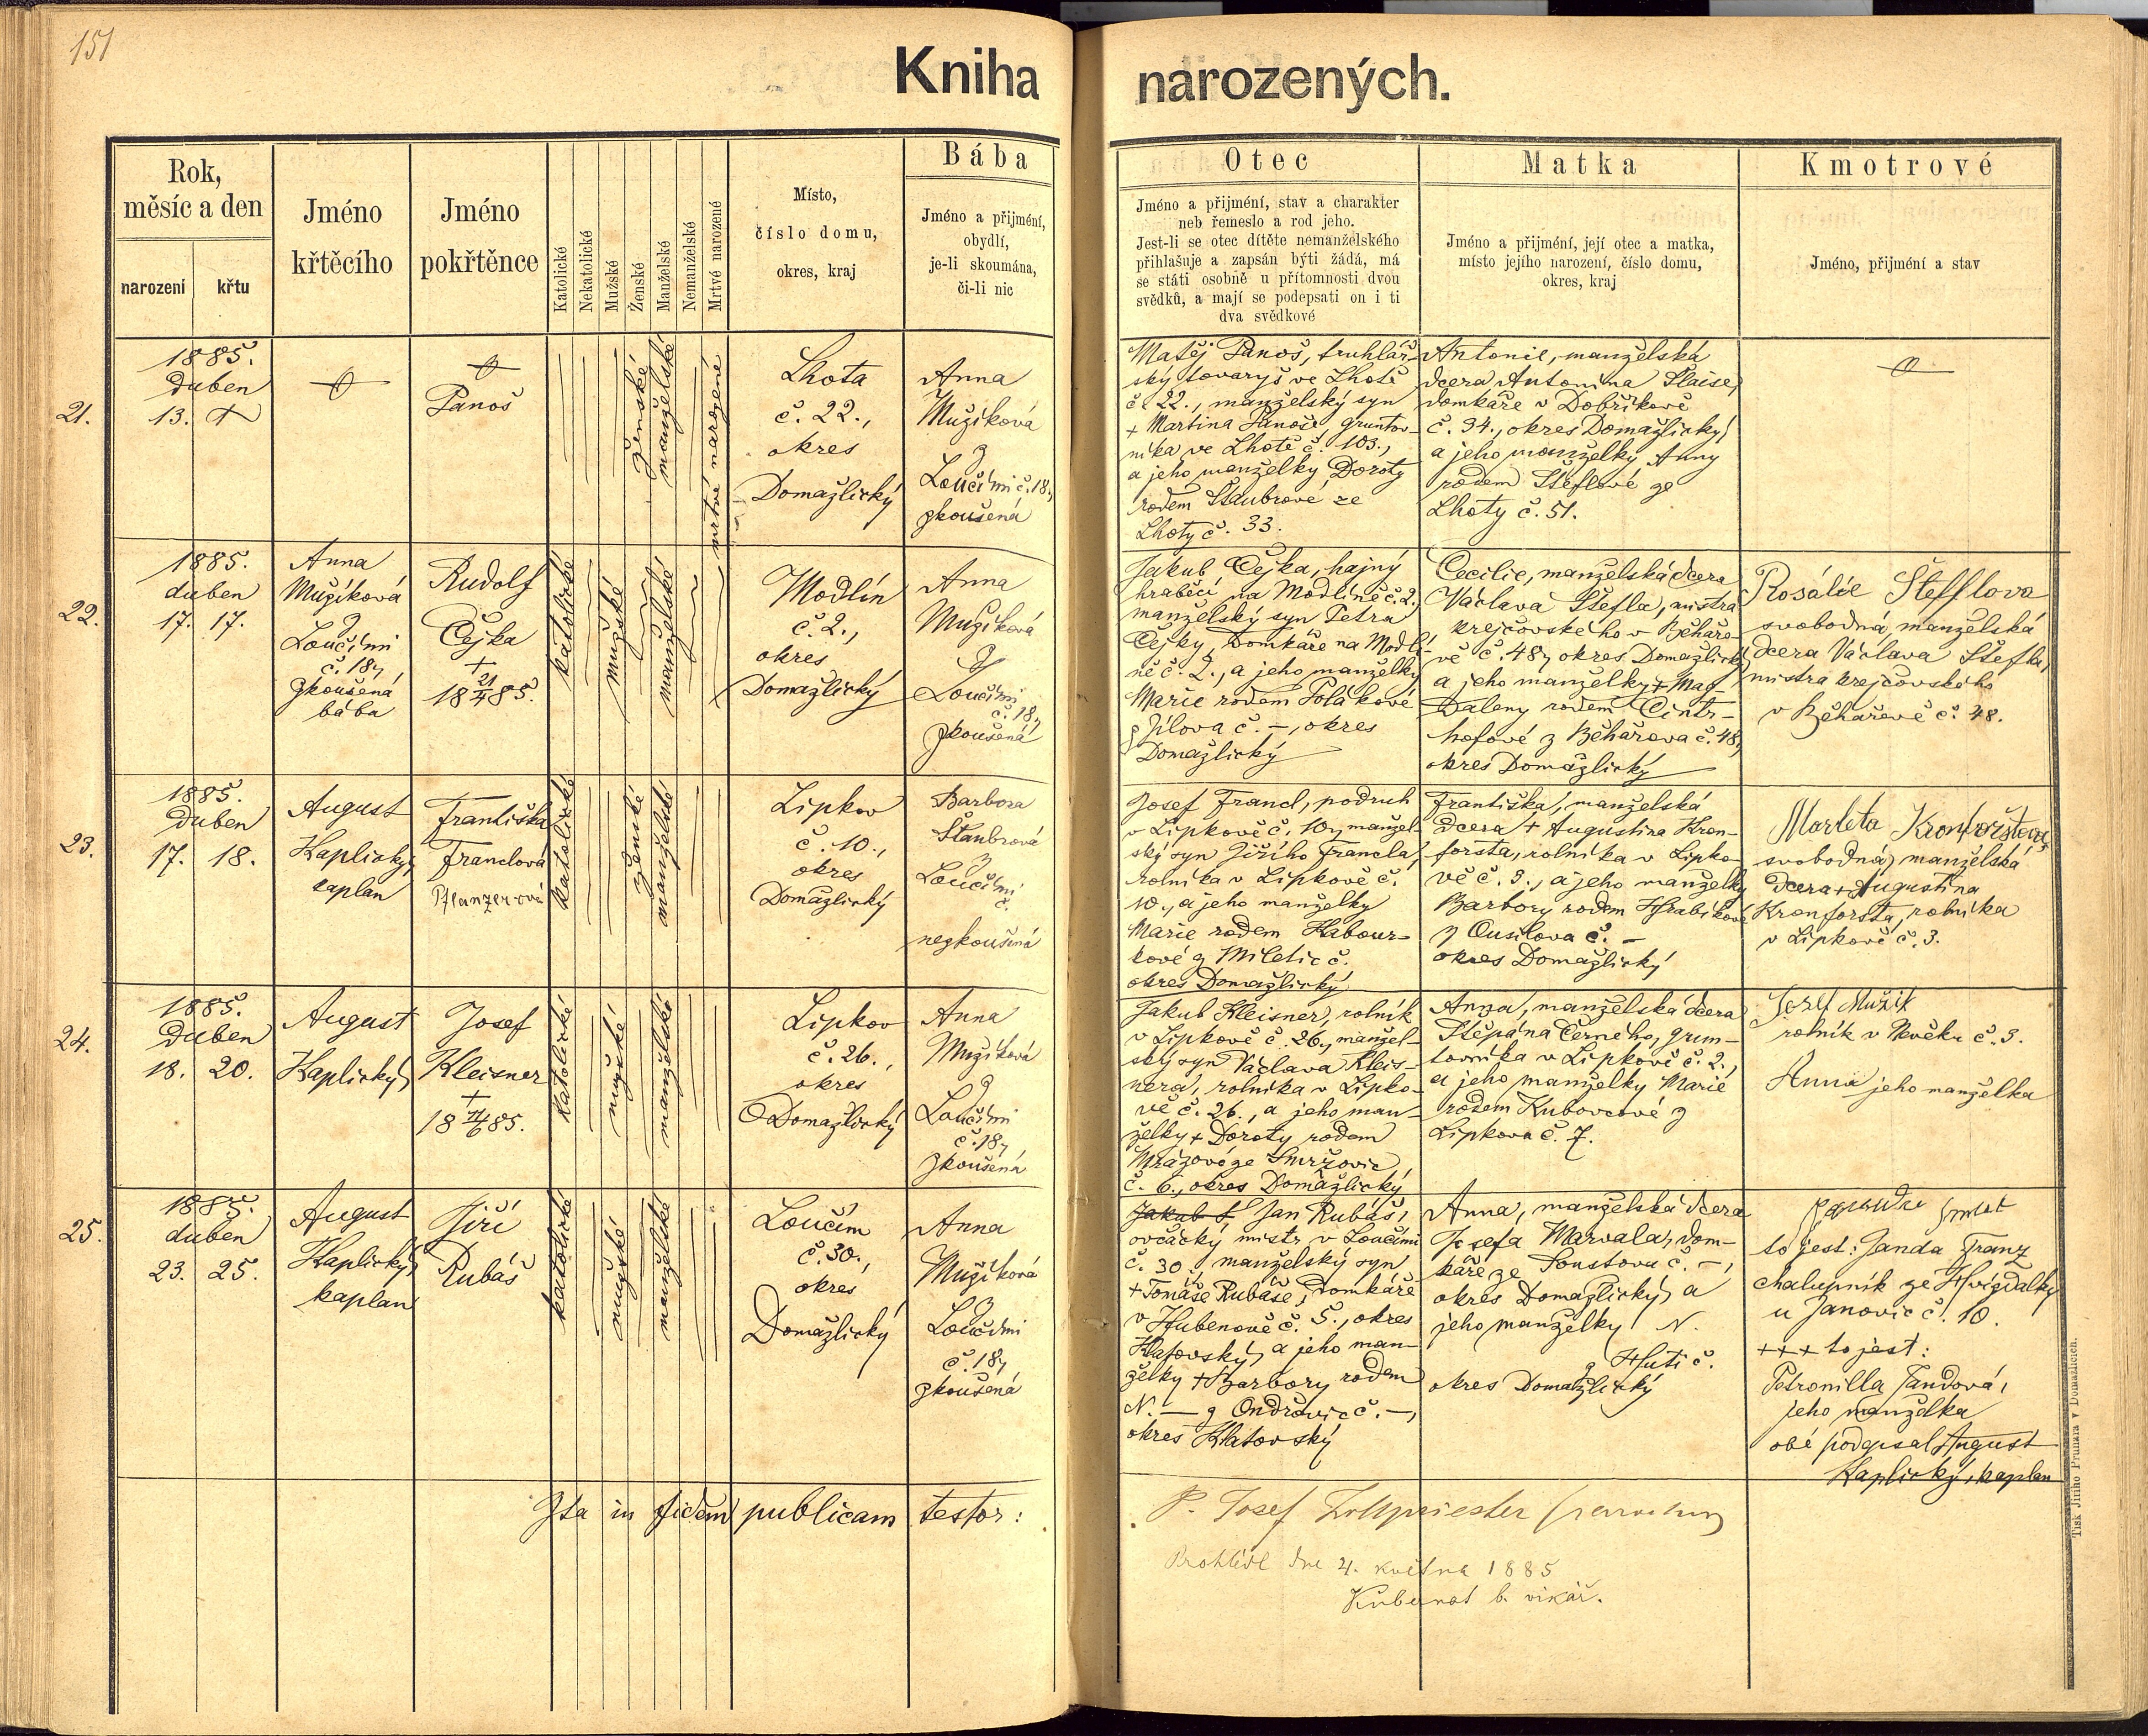 151
Kniha narozených.
Rok,
měsíc a den
narození
křtu
Jméno
křtěcího
Jméno
pokřtěnce
Katolické
Nekatolické
Mužské
Ženské
Manželské
Nemanželské
Mrtvé narozené
Místo,
číslo domu,
okres, kraj
Bába
Jméno a přijméní,
obydlí,
je-li skoumána,
či-li nic
Otec
Jméno a přijméní, stav a charakter
neb řemeslo a rod jeho.
Jest-li se otec dítěte nemanželského
přihlašuje a zapsán býti žádá, má
se státi osobně u přítomnosti dvou
svědků, a mají se podepsati on i ti
dva svědkové
Matka
Jméno a přijméní, její otec a matka,
místo jejího narození, číslo domu,
okres, kraj
Kmotrové
Jméno, přijméní a stav
21.
1885.
duben
13. +
Panoš
ženské
manželské
mrtvě narozené
Lhota
č. 22.,
okres
Domažlický
Anna
Mužíková
z
Loučimi č. 18,
zkoušená
Matěj Panoš, truhlář-
ský tovaryš ve Lhotě
č. 22., manželský syn
+ Martina Panoše, gruntov-
níka ve Lhotě č. 103.,
a jeho manželky Doroty
rodem Štaubrové ze
Lhoty č. 33.
Antonie, manželská
dcera Antonína Slaise,
domkáře v Dobříkově
č. 34., okres Domažlický,
a jeho manželky Anny
rodem Šteflové ze
Lhoty č. 51.
22.
1885.
duben
17. 17.
Anna
Mužíková
z
Loučimi
č. 18,
zkoušená
bába
Rudolf
Čejka
+
18 21/4 85.
katolické
mužské
manželské
Modlín
č. 2.,
okres
Domažlický
Anna
Mužíková
z
Loučimi
č. 18,
zkoušená
Jakub Čejka, hajný
hraběcí na Modlíně č. 2.,
manželský syn Petra
Čejky, domkáře na Modlí-
ně č. 2., a jeho manželky
Marie rodem Polákové
z Jílova č. –, okres
Domažlický
Cecilie, manželská dcera
Václava Štefla, mistra
krejčovského v Běhařo-
vě č. 48, okres Domažlický,
a jeho manželky + Mag-
daleny rodem Cintr-
hofové z Běhařova č. 48,
okres Domažlický
Rosálie Štefflova
svobodná, manželská
dcera Václava Štefla,
mistra krejčovského
v Běhařově č. 48.
23.
1885.
duben
17. 18.
August
Kaplický,
kaplan
Františka
Franclová
Pflanzerová
katolické
ženské
manželské
Lipkov
č. 10.,
okres
Domažlický
Barbora
Štaubrová
z
Loučimi
č.
nezkoušená
Josef Francl, podruh
v Lipkově č. 10, manžel-
ský syn Jiřího Francla,
rolníka v Lipkově č.
10., a jeho manželky
Marie rodem Habour-
kové z Miletic č.
okres Domažlický
Františka, manželská
dcera + Augustina Kron-
forsta, rolníka v Lipko-
vě č. 3., a jeho manželky
Barbory rodem Hrabíkové
z Ousilova č. –
okres Domažlický
Marketa Kronforštova
svobodná, manželská
dcera + Augustina
Kronforsta, rolníka
v Lipkově č. 3.
24.
1885.
duben
18. 20.
August
Kaplický,
Josef
Kleisner
+
18 4/6 85.
katolické
mužské
manželské
Lipkov
č. 26.,
okres
Domažlický
Anna
Mužíková
z
Loučimi
č. 18,
zkoušená
Jakub Kleisner, rolník
v Lipkově č. 26., manžel-
ský syn Václava Kleis-
nera, rolníka v Lipko-
vě č. 26., a jeho man-
želky + Doroty rodem
Mrázové ze Smržovic
č. 6., okres Domažlický
Anna, manželská dcera
Štěpána Černého, grun-
tovníka v Lipkově č. 2.,
a jeho manželky Marie
rodem Kubovcové z
Lipkova č. 7.
Josef Mužik
rolník v Kvěku č. 3.
Anna jeho manželka
25.
1885.
duben
23. 25.
August
Kaplický,
kaplan
Jiří
Rubáš
katolické
mužské
manželské
Loučim
č. 30.,
okres
Domažlický
Anna
Mužíková
z
Loučimi
č. 18,
zkoušená
Jakub Jan Rubáš,
ovčácký mistr v Loučimi
č. 30., manželský syn
+ Tomáše Rubáše, domkáře
v Hubenově č. 5., okres
Klatovský, a jeho man-
želky + Barbory rodem
N. — z Ondřovic č. –,
okres Klatovský
Anna, manželská dcera
Josefa Marvala, dom-
káře ze Soustova č. –,
okres Domažlický, a
jeho manželky N.
z Huti č.
okres Domažlický
to jest: Janda Franz
chalupník ze Hvízdalky
u Janovic č. 10.
+++ to jest:
Petronilla Jandová,
jeho manželka
obé podepsal August
Kaplický, kaplan
Ita in fidem publicam testor:
P. Josef Zollpriester parochus
Prohlédl dne 4. května 1885
Kubernat b. vikář.
Tisk Jiřího Prunara v Domažlicích.